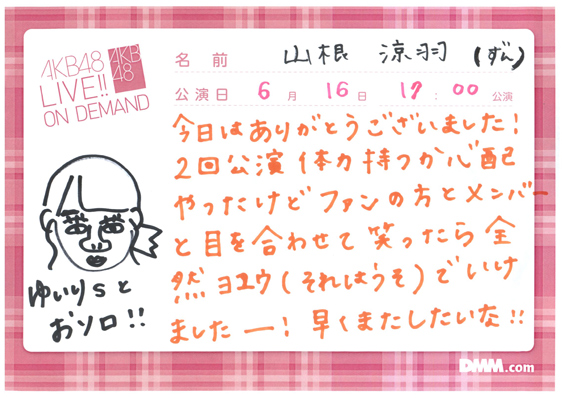 AKB48
LIVE!!
ON DEMAND
AKB
48
名前 山根 涼羽 (ずん)
公演日 6月 16日 17:00 公演
今日はありがとうございました!
2回公演体力持つか心配
やったけどファンの方とメンバー
と目を合わせて笑ったら全
然ヨユウ(それはうそ)でいけ
ましたー! 早くまたしたいな!!
ゆいりsと
おソロ!!
DMM.com